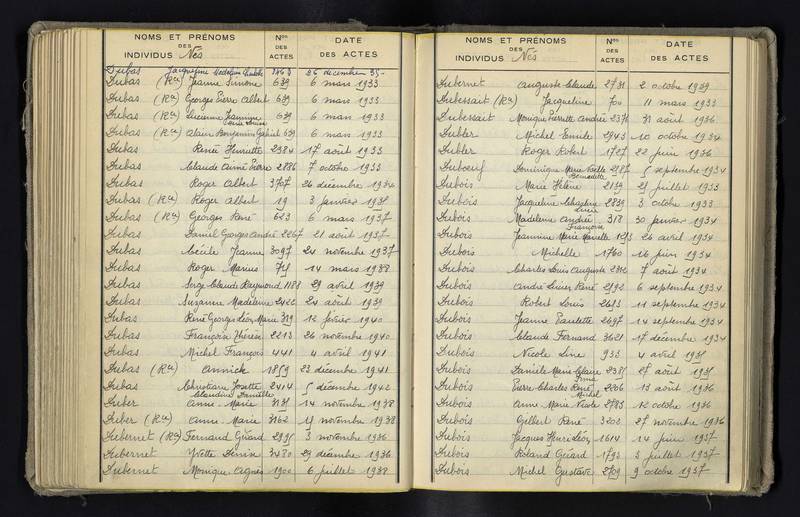 NOMS ET PRÉNOMS
DES
INDIVIDUS Nés
Nos
DES
ACTES
DATE
DES ACTES
Dubas Jacqueline 26 décembre 35
Dubas (Ra) Jeanne Simone 639 6 mars 1933
Dubas (Ra) Georges Pierre Albert 639 6 mars 1933
Dubas (Ra) Lucienne Jeannine 639 6 mars 1933
Dubas (Ra) Alain Benjamin Gabriel 639 6 mars 1933
Dubas Renée Henriette 2384 17 août 1933
Dubas Claude Aimé Pierre 2886 7 octobre 1933
Dubas Roger Albert 3707 26 décembre 1934
Dubas (Ra) Roger Albert 19 3 janvier 1935
Dubas (Ra) Georges René 623 6 mars 1937
Dubas Daniel Georges André 2267 21 août 1937
Dubas Cécile Jeanne 3097 24 novembre 1937
Dubas Roger Marius 745 14 mars 1938
Dubas Serge Claude Raymond 1188 29 avril 1939
Dubas Suzanne Madeleine 2422 24 août 1939
Dubas René Georges Léon Marie 12 février 1940
Dubas François Thérèse 2213 26 novembre 1940
Dubas Michel François 441 4 avril 1941
Dubas (Ra) Annick 1859 23 décembre 1941
Dubas Christiane Josette 2414 5 décembre 1942
Claudine Danielle
Duber Anne-Marie 3135 14 novembre 1938
Duber (Ra) Anne-Marie 3162 novembre 1938
Dubernet (Ra) Fernand Gérard 2995 3 novembre 1936
Dubernet Yvette Denise 3480 29 décembre 1936
Dubernet Monique Agnès 1900 6 juillet 1938
NOMS ET PRÉNOMS
DES
INDIVIDUS Nés
Nos
DES
ACTES
DATE
DES ACTES
Dubernet Auguste Claude 2731 2 octobre 1939
Dubessait (Ra) Jacqueline 700 11 mars 1933
Dubessait Monique Pierrette Andrée 2376 31 août 1936
Dubler Michel Emile 2943 10 octobre 1934
Dubler Roger Robert 1727 22 juin 1936
Duboeuf Dominique Marie Noëlle 2587 5 septembre 1934
Bernadette
Dubois Marie Hélène 2139 21 juillet 1933
Dubois Jacqueline Charline 2839 3 octobre 1933
Lucie
Dubois Madeleine Andrée 318 30 janvier 1934
Françoise
Dubois Jeannine Marie Marcelle 1293 26 avril 1934
Dubois Michelle 1760 16 juin 1934
Dubois Charles Louis Auguste 2312 7 août 1934
Dubois André Lucien René 2592 6 septembre 1934
Dubois Robert Louis 2643 11 septembre 1934
Dubois Jeanne Paulette 2697 14 septembre 1934
Dubois Claude Fernand 3621 17 décembre 1934
Dubois Nicole Line 933 4 avril 1935
Dubois Danielle Marie Claire 2385 27 août 1935
Anna
Dubois Pierre Charles René 2206 13 août 1936
Michel
Dubois Anne Marie Nicole 2783 12 octobre 1936
Dubois Gilbert René 3202 27 novembre 1936
Dubois Jacques Henri Léon 1614 14 juin 1937
Dubois Roland Gérard 1793 3 juillet 1937
Dubois Michel Gustave 2709 9 octobre 1937